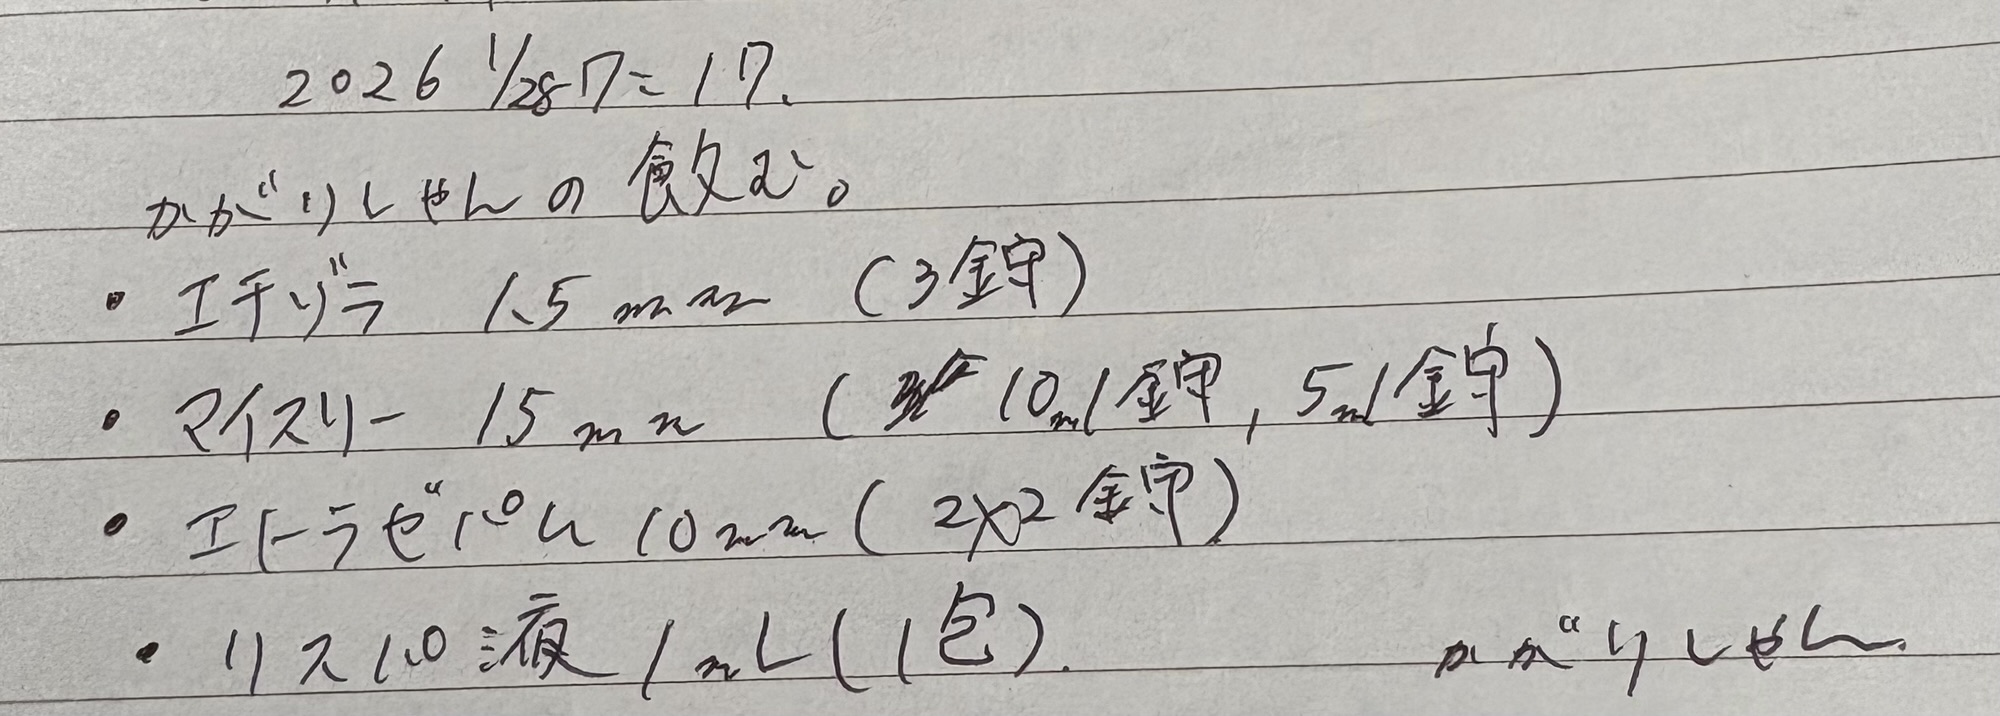 2026 1/28 17:17.
かがりしゃんの飲む。
・エチゾラ 1.5mm (3錠)
・マイスリー 15mm (10m1錠, 5m1錠)
・エトラゼパム 10mm (2×2錠)
・リスパ液 1mL (1包).
かがりしゃん.